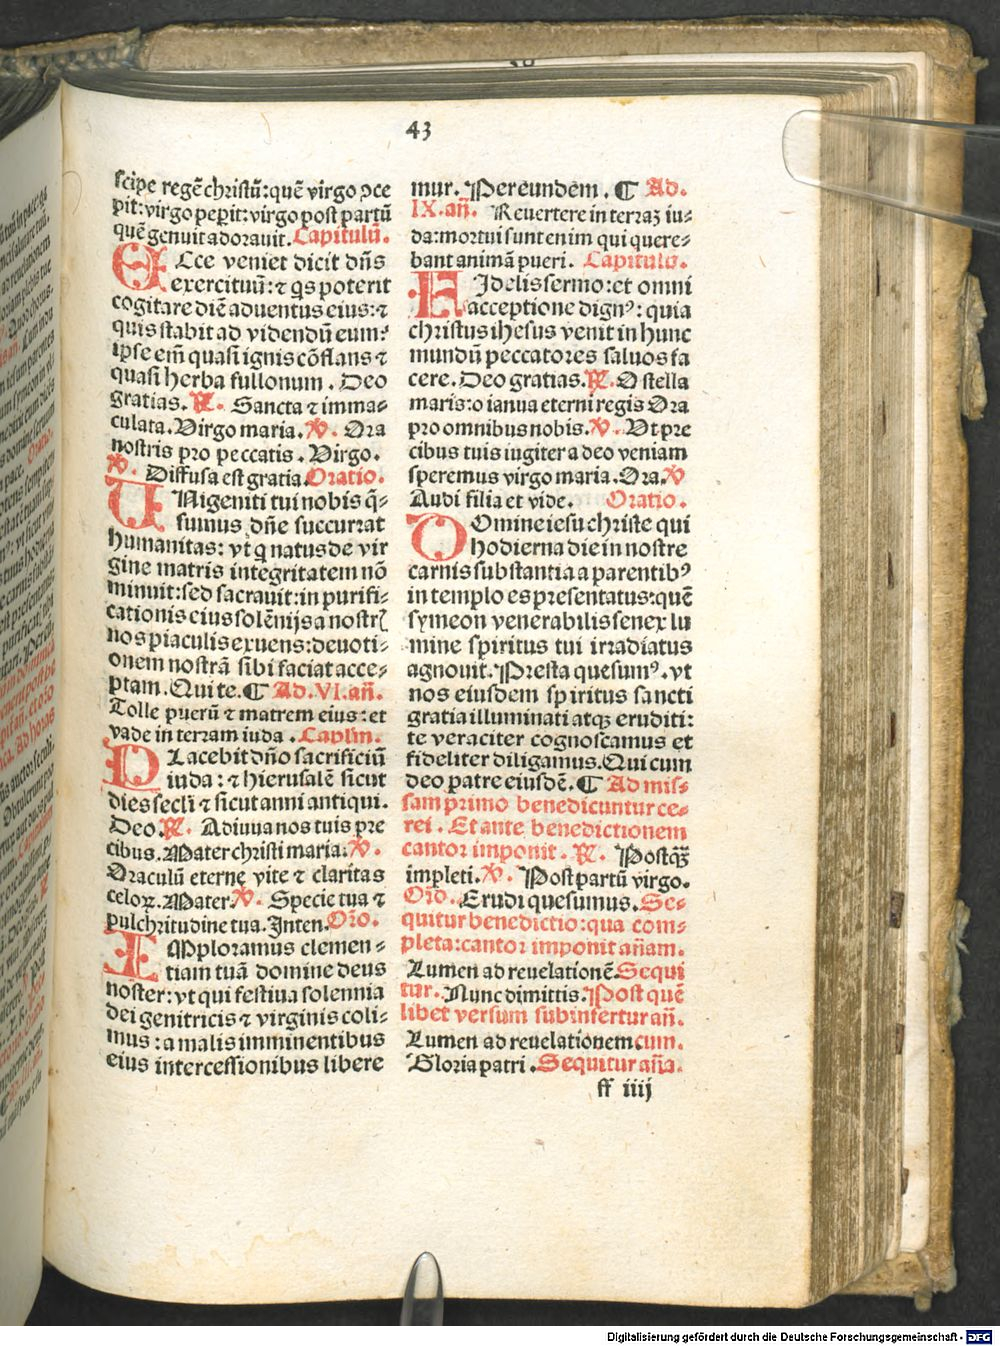 43
scipe regē christū: quē virgo ꝯce
pit: virgo peperit: virgo post partū
quē genuit adorauit. Capitulū.
ECce veniet dicit dn̄s
exercituū: ⁊ q̄s poterit
cogitare diē aduentus eius: ⁊
quis stabit ad videndū eum?
ipse em̄ quasi ignis cōflans ⁊
quasi herba fullonum. Deo
gratias. ℟. Sancta ⁊ imma-
culata. Virgo maria. ℣. Ora
nostris pro peccatis. Virgo.
℣. Diffusa est gratia. Oratio.
UNigeniti tui nobis q̄-
sumus dn̄e succurrat
humanitas: vt q̇ natus de vir
gine matris integritatem nō
minuit: sed sacrauit: in purifi-
cationis eius solēnijs a nostrꝭ
nos piaculis exuens: deuoti-
onem nostrā sibi faciat acce-
ptam. Qui te. ¶ Ad. VI. an̄.
Tolle puerū ⁊ matrem eius: et
vade in terram iuda. Caplm.
PLacebit dn̄o sacrificiū
iuda: ⁊ hierusalē sicut
dies secli ⁊ sicut anni antiqui.
Deo. ℟. Adiuua nos tuis pre
cibus. Mater christi maria. ℣.
Oraculū eterne vite ⁊ claritas
celoꝝ. Mater. ℣. Specie tua ⁊
pulchritudine tua. Inten. Or̄o.
IMploramus clemen-
tiam tuā domine deus
noster: vt qui festiua solennia
dei genitricis ⁊ virginis coli-
mus: a malis imminentibus
eius intercessionibus libere
mur. Per eundem. ¶ Ad.
IX. an̄. Reuertere in terraꝫ iu-
da: mortui sunt enim qui quere-
bant animā pueri. Capitulū.
FIdelis sermo: et omni
acceptione dignꝰ: quia
christus ihesus venit in hunc
mundū peccatores saluos fa
cere. Deo gratias. ℟. O stella
maris: o ianua eterni regis Ora
pro omnibus nobis. ℣. Vt pre
cibus tuis iugiter a deo veniam
speremus virgo maria. Ora. ℣
Audi filia et vide. Oratio.
DOmine iesu christe qui
hodierna die in nostre
carnis substantia a parentibꝰ
in templo es presentatus: quē
symeon venerabilis senex lu
mine spiritus tui irradiatus
agnouit. Presta quesumꝰ. vt
nos eiusdem spiritus sancti
gratia illuminati atqꝫ eruditi:
te veraciter cognoscamus et
fideliter diligamus. Qui cum
deo patre eiusdē. ¶ Ad mis-
sam primo benedicuntur ce-
rei. Et ante benedictionem
cantor imponit. ℟. Postqꝫ̄
impleti. ℣. Post partū virgo.
Or̄o. Erudi quesumus. Se-
quitur benedictio: qua com-
pleta: cantor imponit añam.
Lumen ad reuelationē. Sequi
tur. Nunc dimittis. Post quē
libet versum subinfertur an̄.
Lumen ad reuelationem cum.
Gloria patri. Sequitur aña.
ff iiij
Digitalisierung gefördert durch die Deutsche Forschungsgemeinschaft - DFG